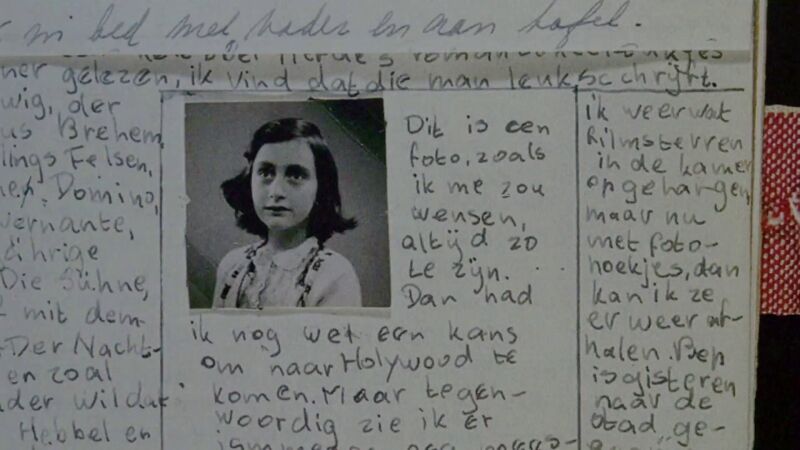 in bed met vader en aan tafel.
ner gelezen, ik vind dat die man leuk schrijft.
wig, der
us Brehem,
lings Felsen,
Domino,
vernante,
jährige
Die Sühne,
mit dem
Der Nacht-
en zoal
der wildat
Hebbel en
Dit is een
foto, zoals
ik me zou
wensen,
altijd zo
te zijn.
Dan had
ik nog wel een kans
om naar Holywood te
komen. Maar tegen-
woordig zie ik er
ik weer wat
filmsterren
in de kamer
opgehangen,
maar nu
met foto-
hoekjes, dan
kan ik ze
er weer af-
halen. Bep
is gisteren
naar de
stad ge-